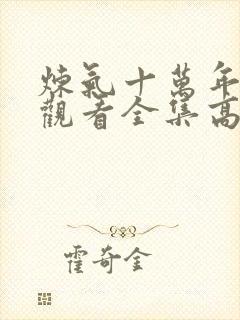 煉氣十萬年
觀看全集高
霍奇金